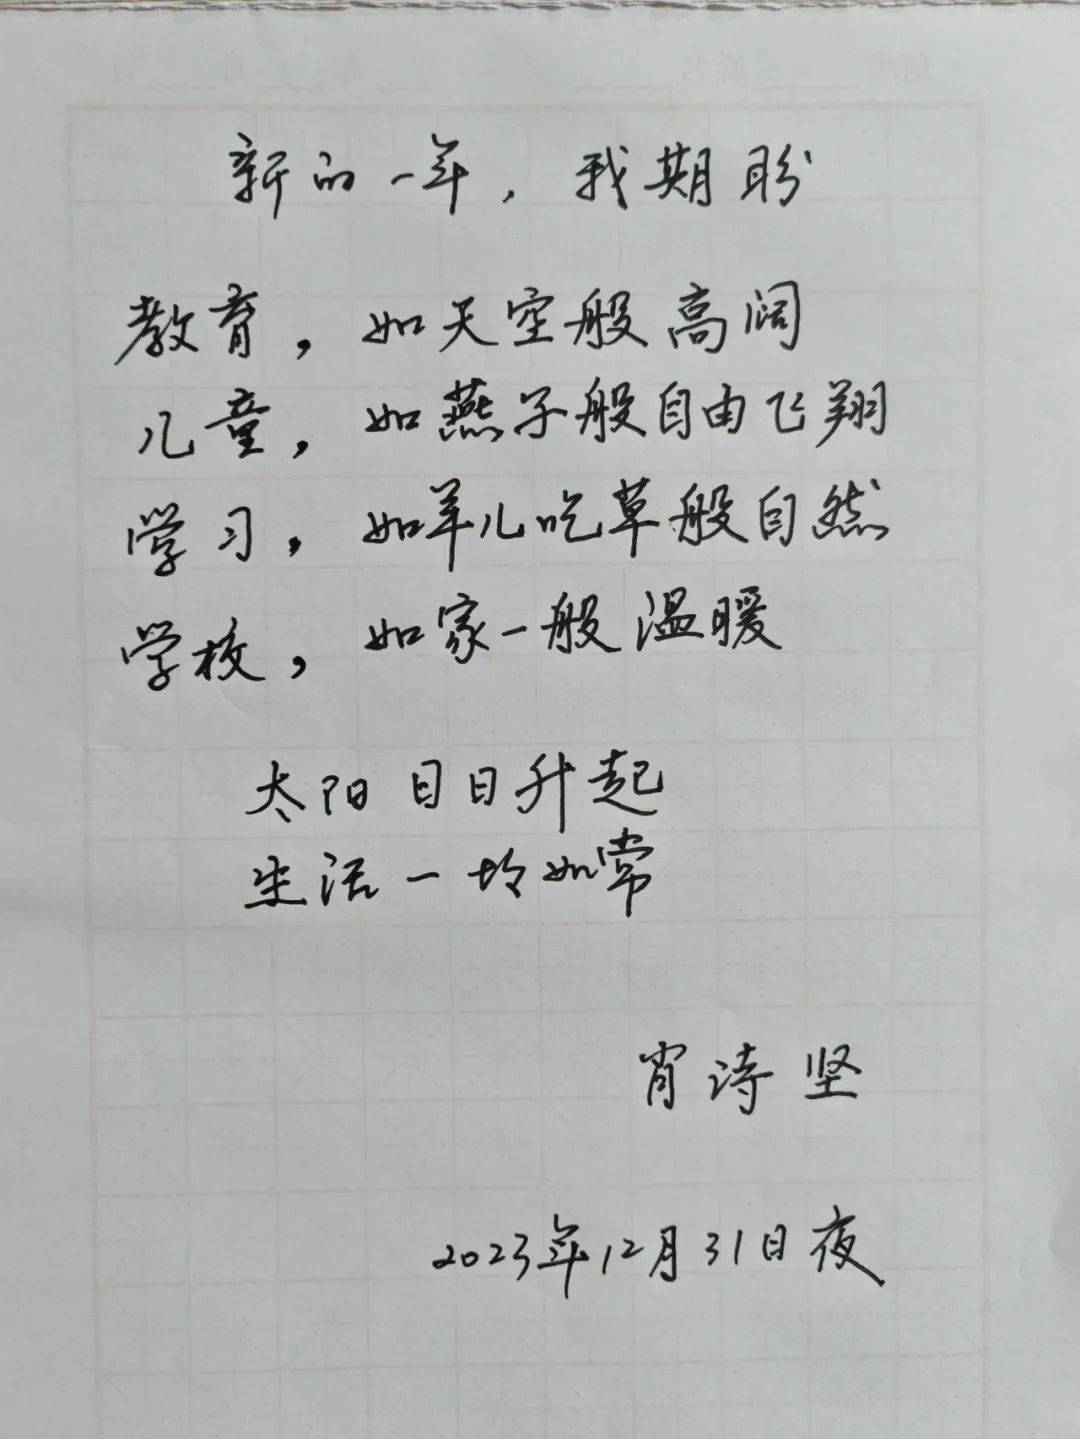 新的一年，我期盼
教育，如天空般高阔
儿童，如燕子般自由飞翔
学习，如羊儿吃草般自然
学校，如家一般温暖
太阳日日升起
生活一如常
肖诗坚
2023年12月31日夜